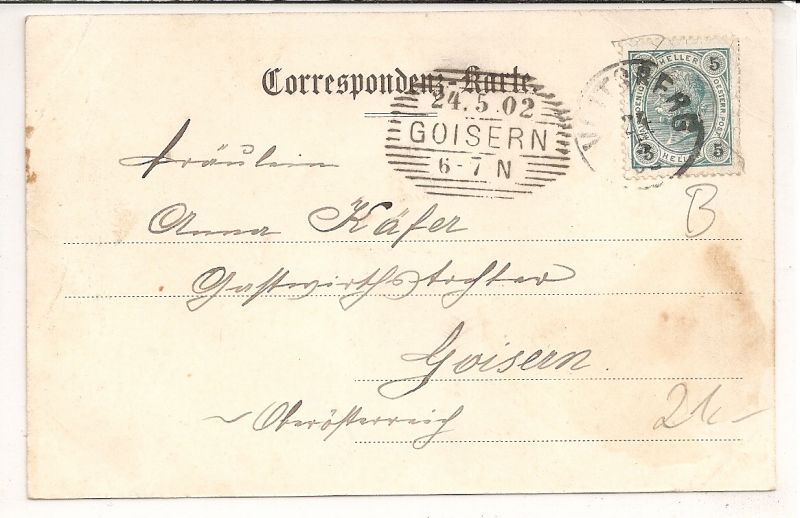 Correspondenz-Karte.
24.5.02
GOISERN
6-7 N
5 HELLER 5
5 HELLER 5
Fräulein
Anna Käfer
B
Gastwirthstochter
Goisern.
~ Oberösterreich